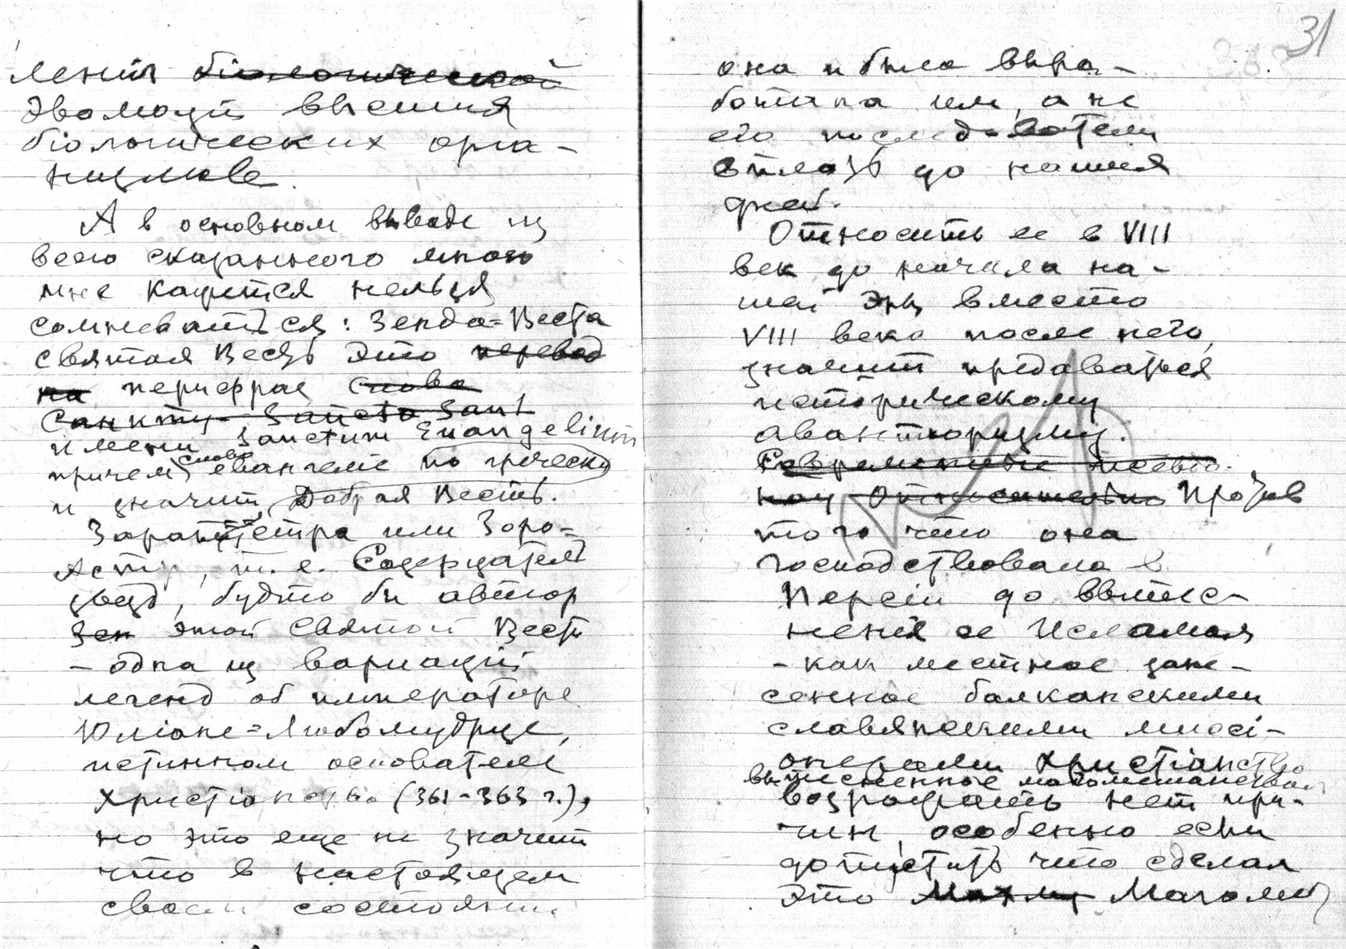 31
ленія біологической
эволюціи высшия
біологических орга-
низмов.
А в основном выводе из
всего сказанного мною
мне кажется нельзя
сомневаться: Зенда=Веста
святая Весть это перевод
на перифраз слова
Санкту Sancta Sant
имени Sanctum Euangelium
причем слово евангеліе по гречески
и значит Добрая Весть.
Заратустра или Зоро-
Астр, т. е. Созерцатель
звезд, будто бы автор
Зен этой Святой Вести
- одна из вариацій
легенд об императоре
Юліане=Любомудрце,
истинном основателе
Христіанства (361-363 г.),
но это еще не значит
что в настоящем
своем состоянии
она и была выра-
ботана им, а не
его последователями
вплоть до нашия
дней.
Относить ее в VIII
век до начала на-
шей эры вместо
VIII века после него,
значит предаваться
историческому
авантюризму.
Против
того что она
господствовала в
Персіи до вытес-
ненія ее Исламом
- как местное зане-
сенное балканскими
славянскими миссі-
онерами Христіанство
вытесненное магометанством
возражать нет при-
чин, особенно если
допустить что сделал
это Магомет